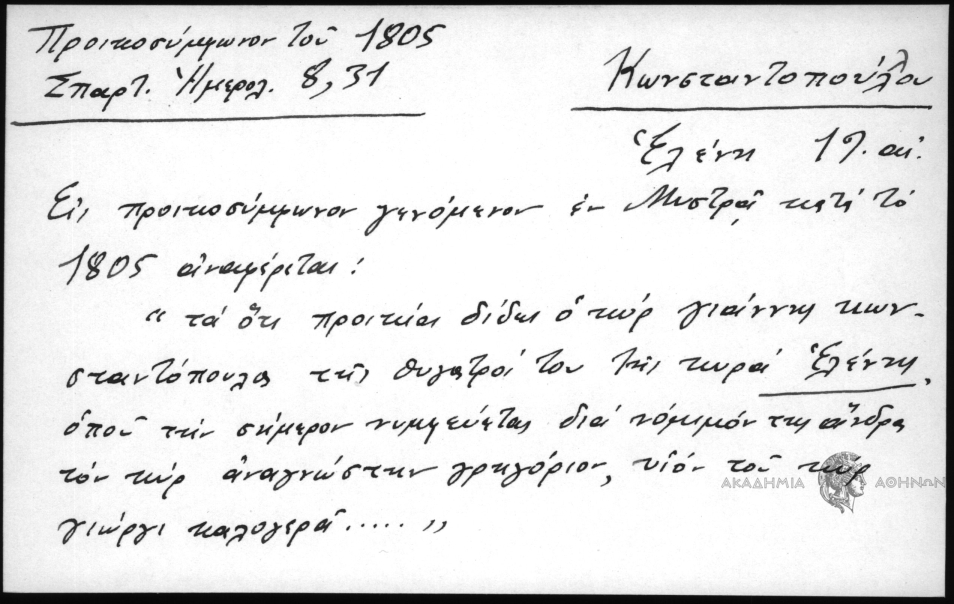 Προικοσύμφωνον τοῦ 1805
Σπαρτ. Ἡμερολ. 8, 31
Κωνσταντοπούλου
Ἑλένη 19. αἰ.
Εἰς προικοσύμφωνον γενόμενον ἐν Μυστρᾷ κατά τό
1805 ἀναφέρεται:
" τά ὅτι προικιά δίδει ὁ κύρ γιάννης κων-
σταντόπουλος τῆς θυγατρός του τῆς κυρά Ἑλένης,
ὁποῦ τήν σήμερον νυμφεύεται διά νόμιμόν της ἄνδρα
τόν κύρ ἀναγνώστην γρηγόριον, υἱόν τοῦ κύρ
γιώργι καλογερᾶ ..... "
ΑΚΑΔΗΜΙΑ ΑΘΗΝΩΝ